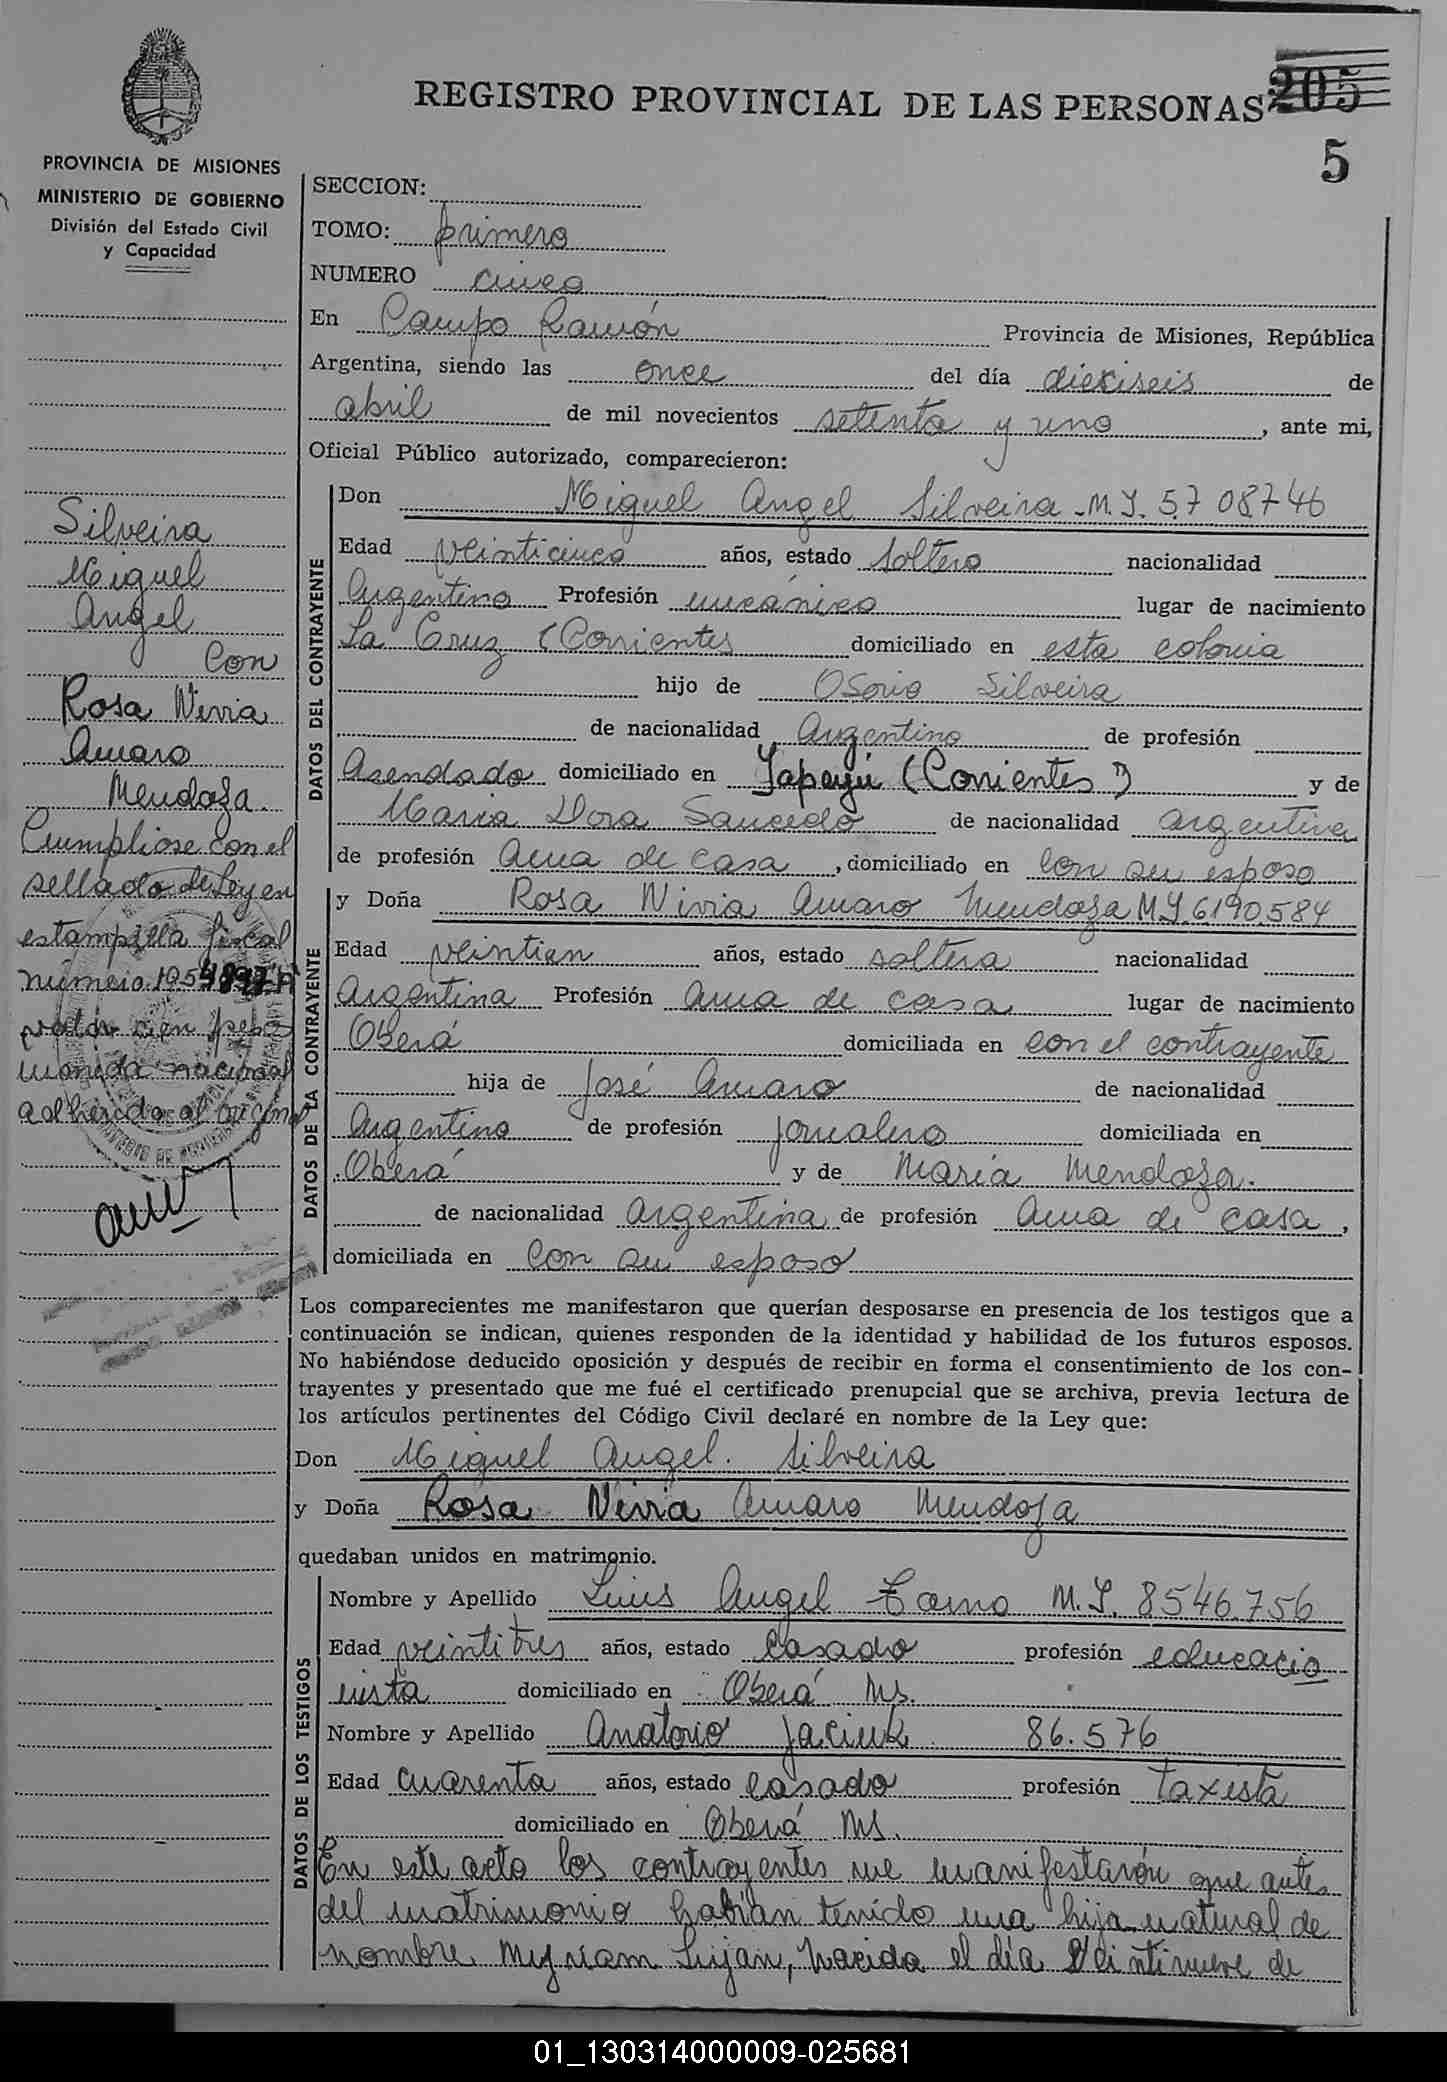 REGISTRO PROVINCIAL DE LAS PERSONAS 205
5
PROVINCIA DE MISIONES
MINISTERIO DE GOBIERNO
División del Estado Civil
y Capacidad
SECCION:
TOMO: primero
NUMERO cinco
En Campo Ramón Provincia de Misiones, República
Argentina, siendo las once del día dieciseis de
abril de mil novecientos setenta y uno, ante mi,
Oficial Público autorizado, comparecieron:
Silveira
Miguel
Angel
Con
Rosa Nivia
Amaro
Mendoza.
Cumpliose con el
sellado de Ley en
estampilla fiscal
número 1054
valor cien pesos
moneda nacional
adherido al origin
DATOS DEL CONTRAYENTE
Don Miguel Angel Silveira M.I. 5708746
Edad veinticinco años, estado soltero nacionalidad
Argentino Profesión mecánico lugar de nacimiento
La Cruz (Corrientes domiciliado en esta colonia
hijo de Osorio Silveira
de nacionalidad Argentino de profesión
Asendado domiciliado en Yapeyú (Corrientes) y de
Maria Dora Saucedo de nacionalidad argentina
de profesión Ama de casa, domiciliado en con su esposo
DATOS DE LA CONTRAYENTE
y Doña Rosa Nivia Amaro Mendoza M.I. 6190.584
Edad veintiun años, estado soltera nacionalidad
Argentina Profesión Ama de casa lugar de nacimiento
Oberá domiciliada en con el contrayente
hija de José Amaro de nacionalidad
Argentino de profesión jornalero domiciliada en
Oberá y de Maria Mendoza.
de nacionalidad Argentina de profesión Ama de casa,
domiciliada en Con su esposo
Los comparecientes me manifestaron que querían desposarse en presencia de los testigos que a
continuación se indican, quienes responden de la identidad y habilidad de los futuros esposos.
No habiéndose deducido oposición y después de recibir en forma el consentimiento de los con-
trayentes y presentado que me fué el certificado prenupcial que se archiva, previa lectura de
los artículos pertinentes del Código Civil declaré en nombre de la Ley que:
Don Miguel Angel. Silveira
y Doña Rosa Nivia Amaro Mendoza
quedaban unidos en matrimonio.
DATOS DE LOS TESTIGOS
Nombre y Apellido Luis Angel M.I. 8546.756
Edad veintitres años, estado Casado profesión educacio
nista domiciliado en Oberá Ms.
Nombre y Apellido Anatorio Jaciuk 86.576
Edad cuarenta años, estado casado profesión taxista
domiciliado en Oberá Ms.
En este acto los contrayentes me manifestarón que antes
del matrimonio habían tenido una hija natural de
nombre Myriam Lujan, nacida el día veintinueve de
01_130314000009-025681